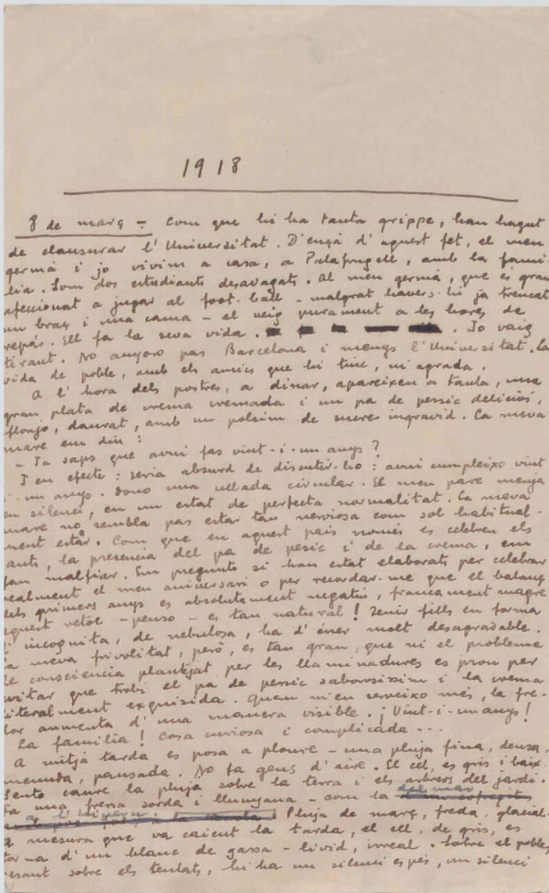 1918
8 de març – Com que hi ha tanta grippe, han hagut
de clausurar l'Universitat. D'ençà d'aquest fet, el meu
germà i jo vivim a casa, a Palafrugell, amb la famí-
lia. Som dos estudiants desvagats. Al meu germà, que és gran
afeccionat a jugar al foot-ball – malgrat haver-s-hi ja trencat
un braç i una cama – el veig purament a les hores de
repàs. Ell fa la seva vida. Jo vaig
tirant. No anyoro pas Barcelona i menys l'Universitat. La
vida de poble, amb els amics que hi tinc, m'agrada.
A l'hora dels postres, a dinar, apareixen a taula, una
gran plata de crema cremada i un pa de pessic deliciós,
flonjo, daurat, amb un polsim de sucre ingràvid. La meva
mare em diu:
– Ja saps que avui fas vint-i-un anys?
I en efecte: seria absurd de discutir-ho: avui cumpleixo vint
i-un anys. Dono una ullada circular. El meu pare menja
en silenci, en un estat de perfecta normalitat. La meva
mare no sembla pas estar tan nerviosa com sol habitual-
ment estar. Com que en aquest país només es celebren els
sants, la presència del pa de pesic i de la crema, em
fan malfiar. Em pregunto si han estat elaborats per celebrar
realment el meu aniversari o per recordar-me que el balanç
dels primers anys es absolutament negatiu, francament magre
Aquest retol – penso – es tan natural! Tenir fills en forma
d'incognita, de nebulosa, ha d'ésser molt desagradable.
La meva frivolitat, però, es tan gran, que ni el problema
de consciencia plantejat per les llaminadures es prou per
evitar que trobi el pa de pessic saborosissim i la crema
literalment exquisida. Quan m'en serveixo més, la fre-
dor aumenta d'una manera visible. ¡Vint-i-un anys!
La familia! Cosa curiosa i complicada...
A mitja tarda es posa a ploure – una pluja fina, densa,
menuda, pausada. No fa gens d'aire. El cel, es gris i baix.
Sento caure la pluja sobre la terra i els arbres del jardí.
Fa una fressa sorda i llunyana – com la del mar
a l'hivern. Pluja de març, freda, glacial.
A mesura que va caient la tarda, el cel, de gris, es
torna d'un blanc de gassa – livid, irreal. Sobre el poble,
pesant sobre els teulats, hi ha un silenci espès, un silenci